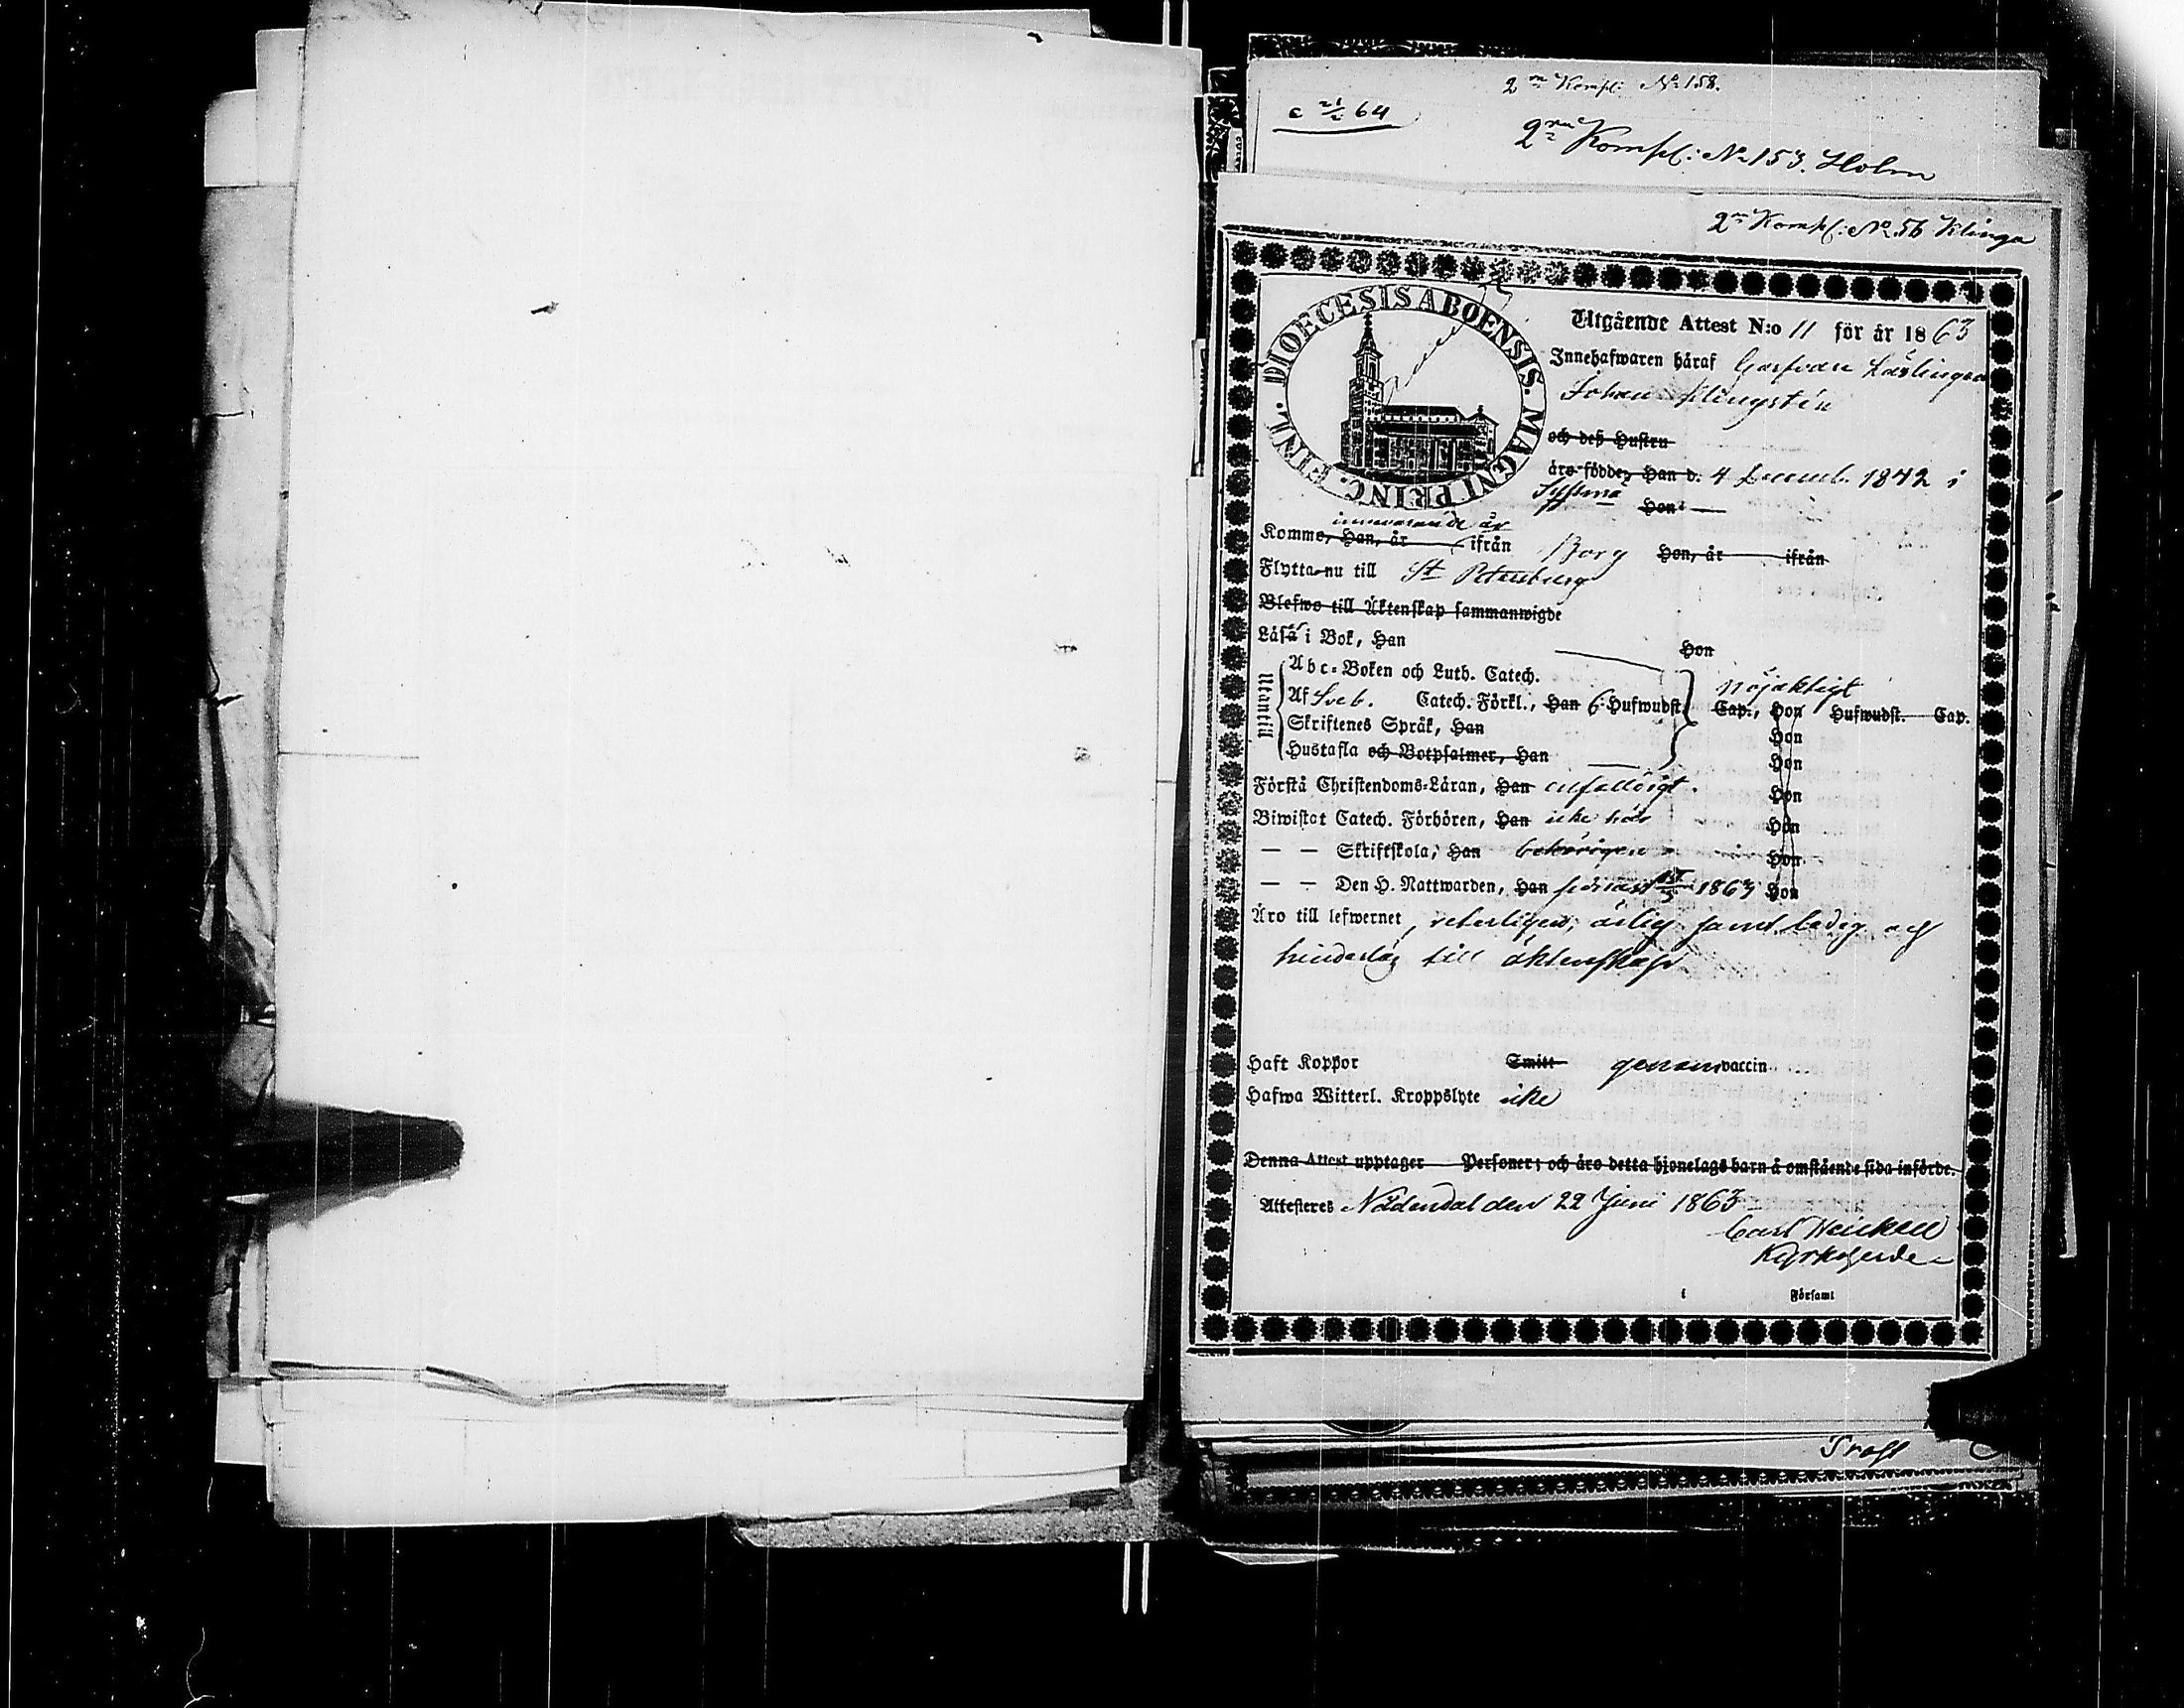 2:n Kompl: No 158.
c 21/2 64
2:dra Kompl: No 153. Holm
2:n Kompl: No 56 Klinga
DIOECESIS ABOENSIS. MAGNI PRINC. FINL.
Utgående Attest N:o 11 för år 1863
Innehafwaren häraf Garfvare Lärlingen
Johan Klingstén
och deß Hustru
äro födde, Han d. 4 Decemb. 1842 i
Hon
innevarande år
Komme, Han, år ifrån Borg Hon, år ifrån
Flytta nu till St Petersburg
Blefwo till Äktenskap sammanwigde
Läsa i Bok, Han Hon
Utantill
Abc-Boken och Luth. Catech. nöjaktigt
Af Sveb. Catech. Förkl., Han 6 Hufwudst. Cap., Hon Hufwudst. Cap.
Skriftenes Språk, Han Hon
Hustafla och Botpsalmer, Han Hon
Förstå Christendoms-Läran, Han enfaldigt. Hon
Biwistat Catech. Förhören, Han icke här Hon
— — Skriftskola, Han behörigen Hon
— — Den H. Nattwarden, Han sednast 1863 Hon
Äro till lefwernet, ärlig samt ledig och
hinderslös till äktenskap
Haft Koppor Smitt genom vaccin
Hafwa Witterl. Kroppslyte icke
Denna Attest upptager Personer; och äro detta hjonelags barn å omstående sida införde.
Attesteres Nådendal den 22 Juni 1863
Carl Heickell
Kyrkoherde
i Församl